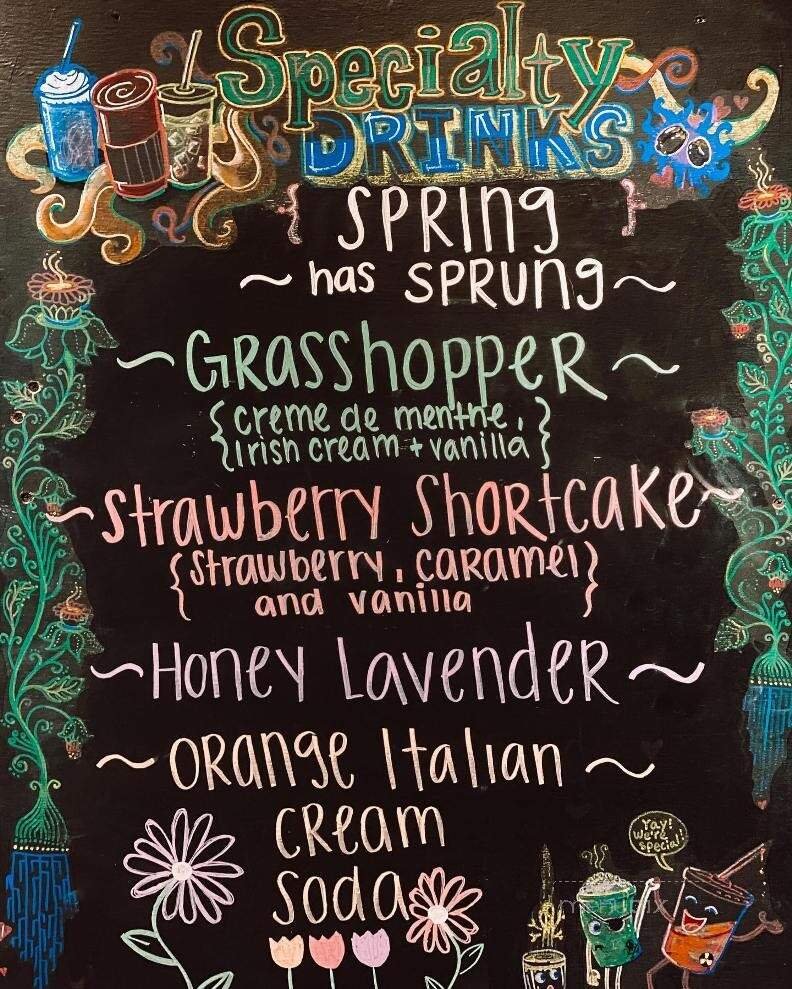 Specialty
DRINKS
{ SPRING }
~ has SPRUNG ~
~ GRasshoppeR ~
{creme de menthe,}
{Irish cream + vanilla}
~ Strawberry ShoRtcaKe ~
{Strawberry, caRamel}
and vanilla
~ Honey Lavender ~
~ ORange Italian ~
cReam
soda
Yay!
We're
special!
menupix